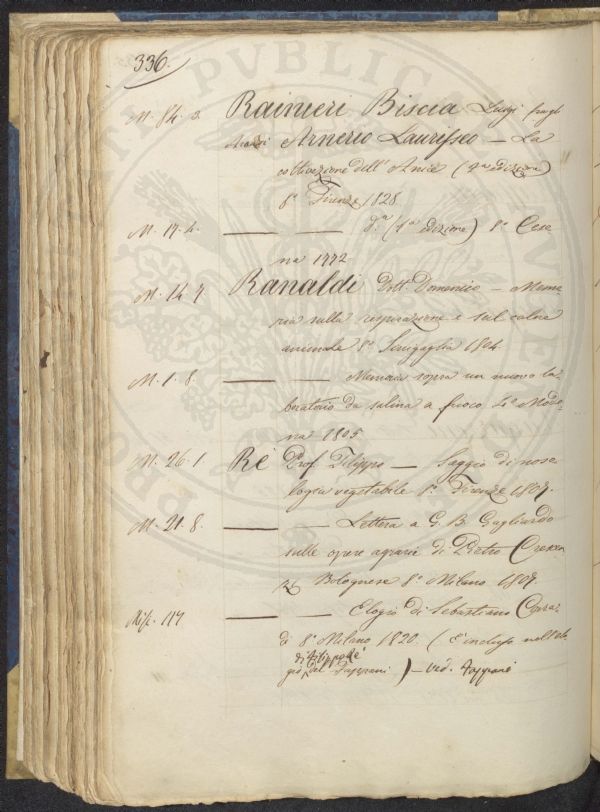 336.
M. 84. 3. Rainieri Biscia Luigi fragl
Arcadi Arnerio Laurisseo — La
coltivazione dell'Anice (2a edizione)
8.o Firenze 1828
M. 17. 4. —— —— d.a (1a edizione) 8.o Cese
na 1772
M. 14. 7 Ranaldi Dott. Domenico — Memo
ria sulla respirazione e sul calore
animale 8.o Senigaglia 1804.
M. 1. 8. —— —— Memoria sopra un nuovo la
boratorio da salina a fuoco 4.o Mode
na 1805
M. 26. 1. Re Prof. Filippo — Saggio di noso
logia vegetabile 8.o Firenze 1807.
M. 21. 8. —— — Lettera a G. B. Gagliardo
sulle opere agrarie di Pietro Crescen
zi Bolognese 8.o Milano 1807.
Misc. 117 —— —— Elogio di Sebastiano
di 8.o Milano 1820. (È incluso nell'elo
di Filippo Re
gio del Fappani) — ved. Fappani
PUBLICA